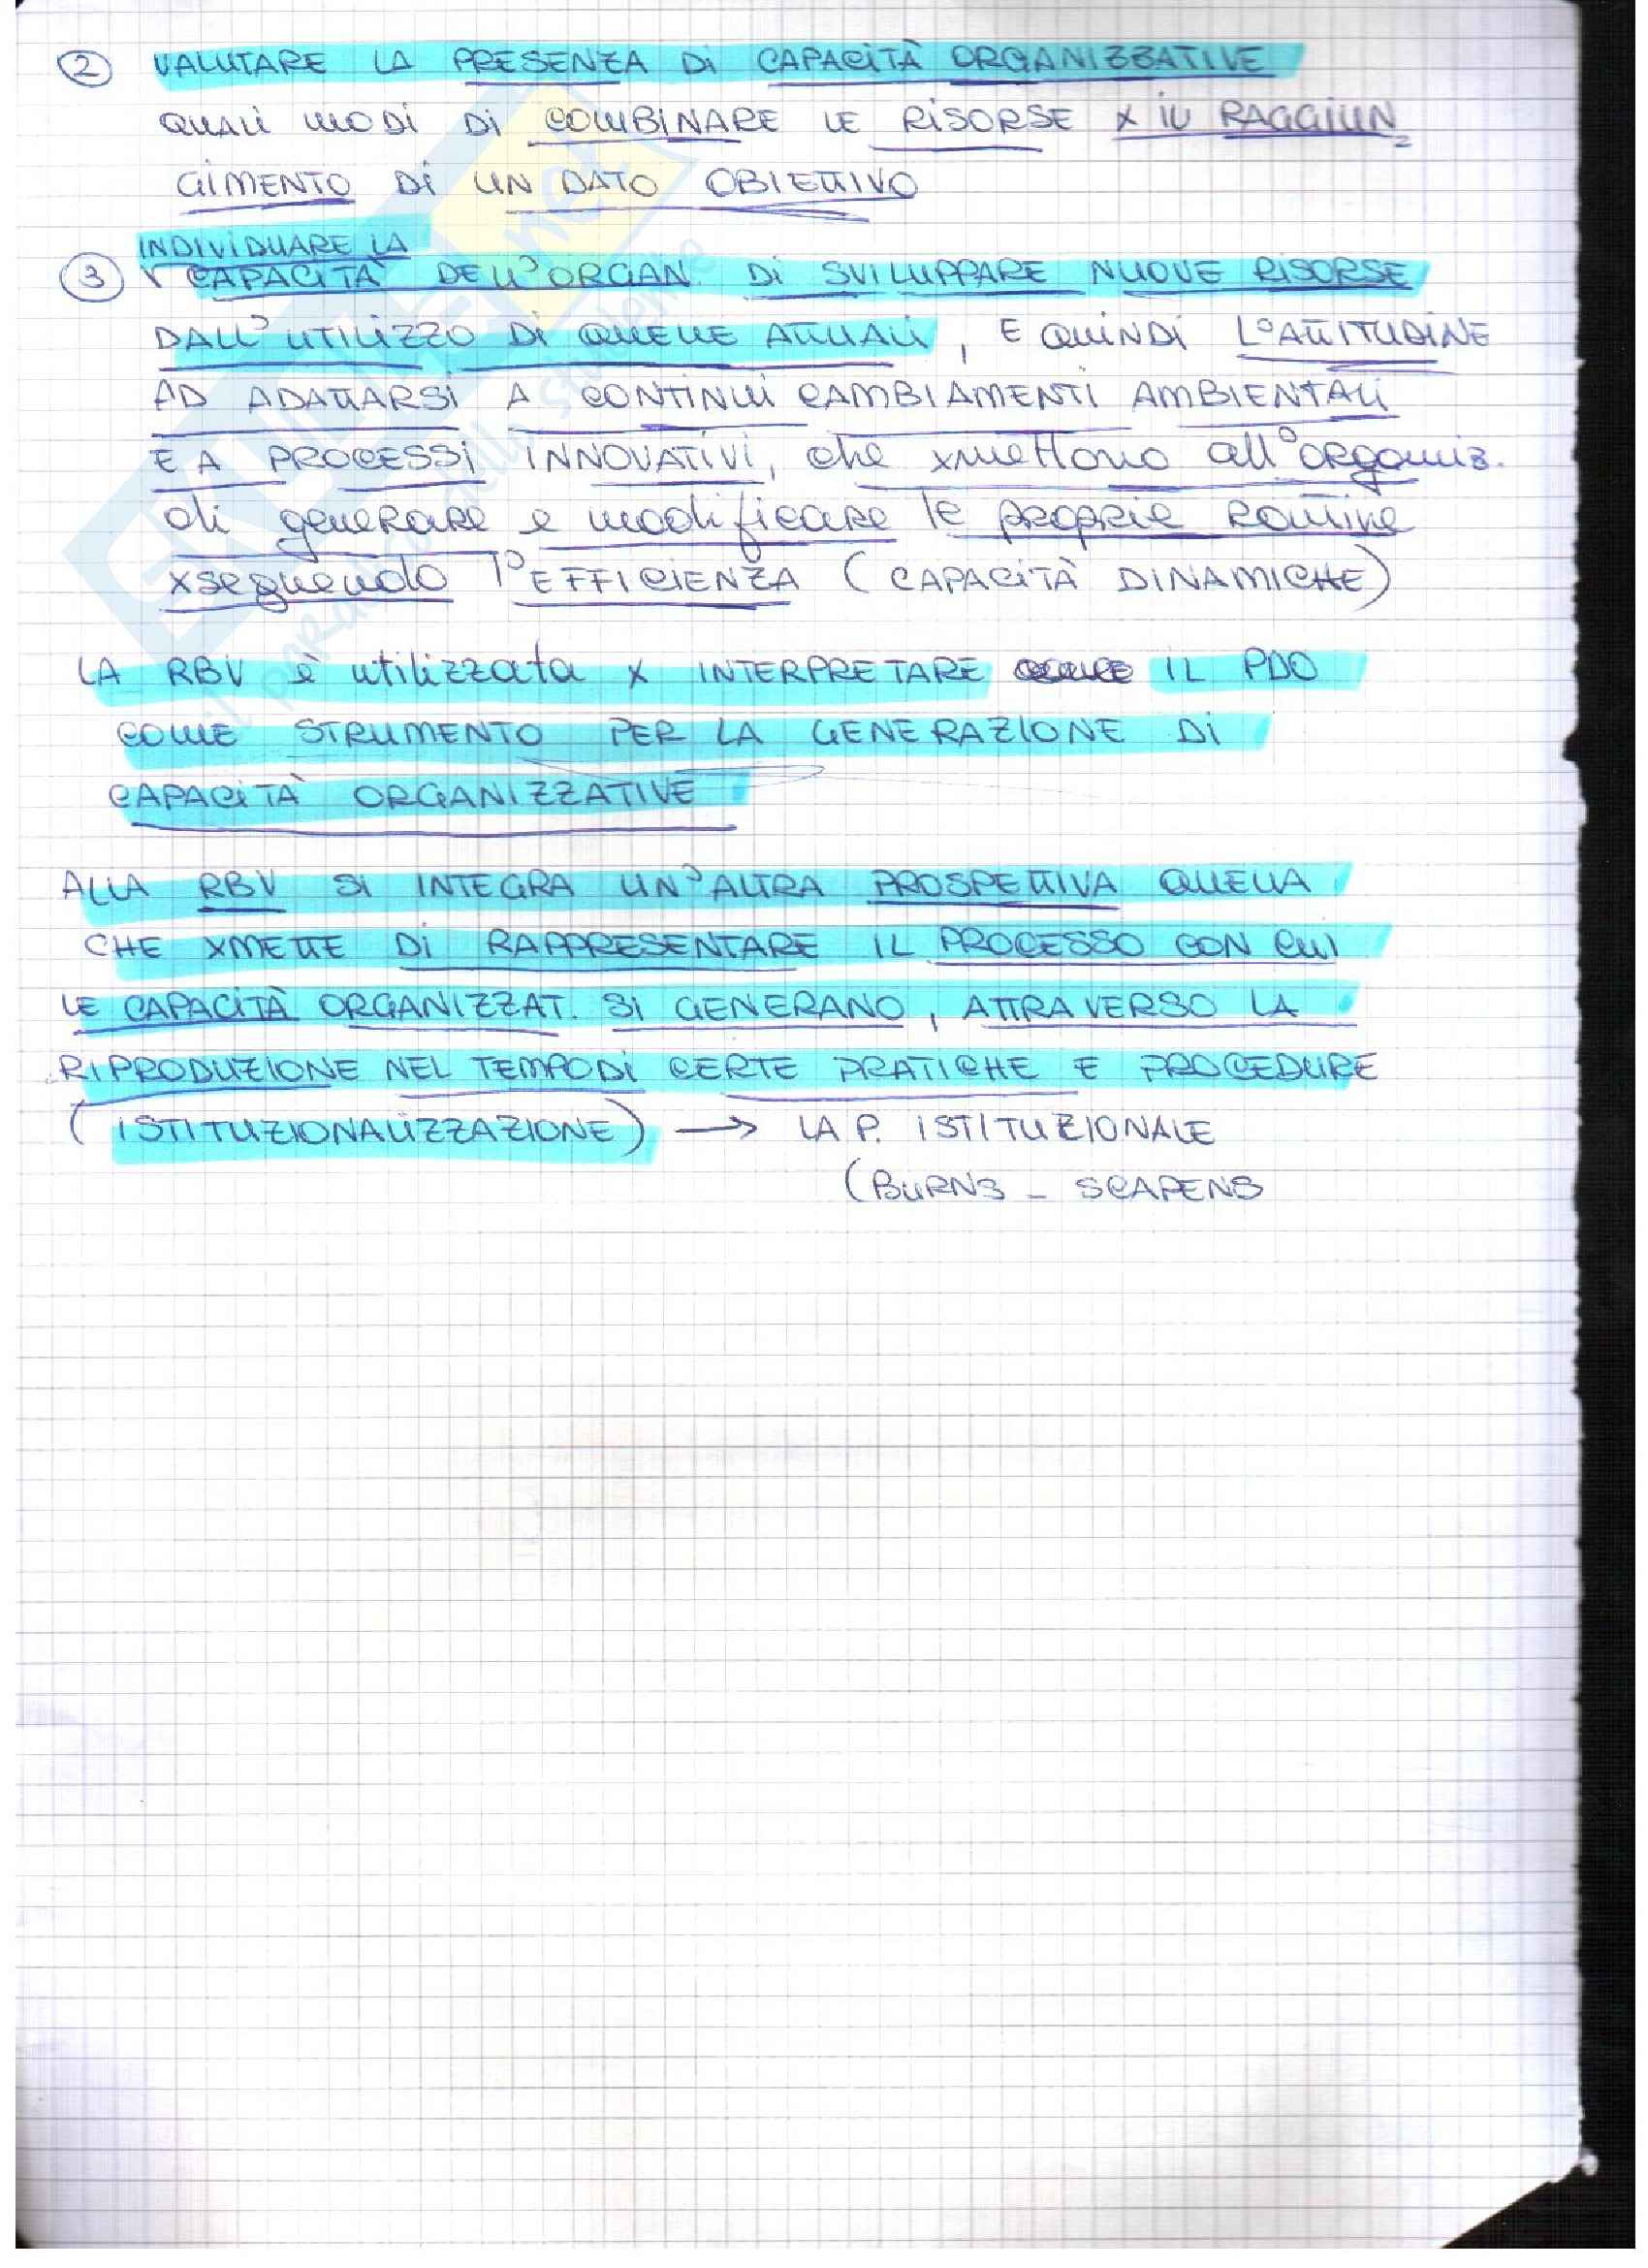 ② VALUTARE LA PRESENZA DI CAPACITÀ ORGANIZZATIVE
QUALI MODI DI COMBINARE LE RISORSE X IL RAGGIUN
GIMENTO DI UN DATO OBIETTIVO
INDIVIDUARE LA
③ CAPACITÀ DELL'ORGAN. DI SVILUPPARE NUOVE RISORSE
DALL'UTILIZZO DI QUELLE ATTUALI, E QUINDI L'ATTITUDINE
AD ADATTARSI A CONTINUI CAMBIAMENTI AMBIENTALI
E A PROCESSI INNOVATIVI, che xmettono all'organiz.
di generare e modificare le proprie routine
xseguendo l'EFFICIENZA (CAPACITÀ DINAMICHE)
LA RBV è utilizzata x INTERPRETARE IL PDO
COME STRUMENTO PER LA GENERAZIONE DI
CAPACITÀ ORGANIZZATIVE
ALLA RBV SI INTEGRA UN'ALTRA PROSPETTIVA QUELLA
CHE XMETTE DI RAPPRESENTARE IL PROCESSO CON CUI
LE CAPACITÀ ORGANIZZAT. SI GENERANO, ATTRAVERSO LA
RIPRODUZIONE NEL TEMPO DI CERTE PRATICHE E PROCEDURE
(ISTITUZIONALIZZAZIONE) → LA P. ISTITUZIONALE
(BURNS - SCAPENS